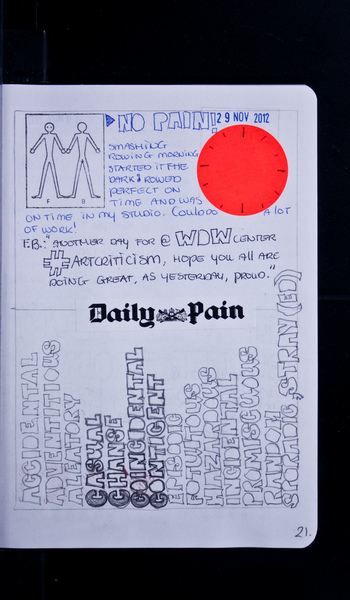 NO PAIN! 29 NOV 2012
SMASHING
ROWING MORNING
STARTED IT THE
DARK & ROWED
PERFECT ON
TIME AND WAS
ON TIME IN MY STUDIO. COULDOO A LOT
OF WORK!
F.B.: "ANOTHER DAY FOR @ WDW CENTER
#ARTCRITICISM, HOPE YOU ALL ARE
DOING GREAT, AS YESTERDAY, PROUD."
F B
Daily Pain
ACCIDENTAL
ADVENTITIOUS
ALEATORY
CASUAL
CHANSE
COINCIDENTAL
CONTIGENT
EPISODIC
FOTUITOUS
HAZARDOUS
INCIDENTAL
PROMISCUOUS
RANDOM
SPORADIC, STRAY(ED)
21.